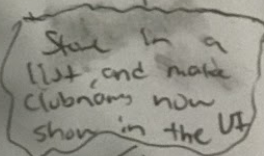 Store in a
list, and make
clubnams now
show in the UI